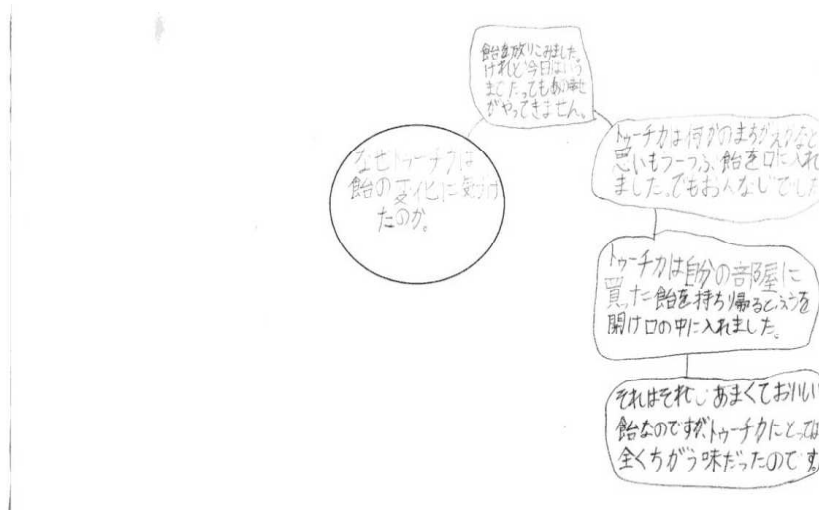 飴を放りこみました。
けれど今日はいつ
までたってもあの幸せ
がやってきません。
なぜトゥーチカは
飴の変化に気付け
たのか。
トゥーチカは何かのまちがえかなと
思いもう一つぶ、飴を口に入れ
ました。でもおんなじでした
トゥーチカは自分の部屋に
買った飴を持ち帰るとふうを
開け口の中に入れました。
それはそれであまくておいしい
飴なのですが、トゥーチカにとっては
全くちがう味だったのです。